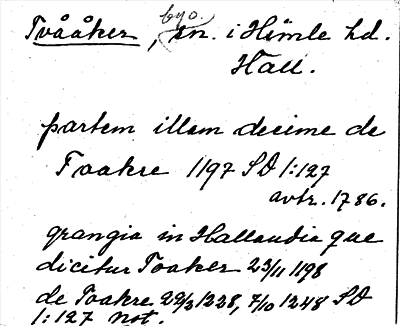 Tvååker, byo. sn. i Himle hd.
Hall.
partem illam decime de
Toakre 1197 SD 1:127
avtr. 1786.
grangia in Hallandia que
dicitur Toaker 23/11 1198
de Toakre 29/3 1228, 7/10 1248 SD
1:127 not.